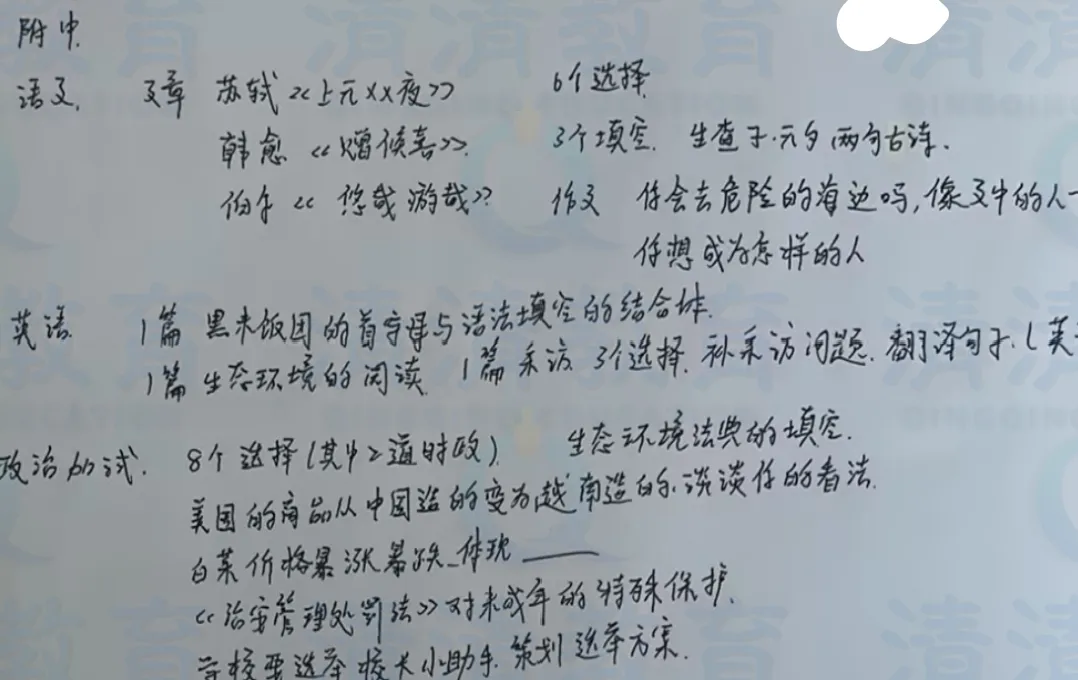 附中.
语文. 文章 苏轼《上元××夜》 6个选择
韩愈《赠侯喜》. 3个填空. 生查子·元夕 两句古诗.
伯尔《悠哉游哉》 作文 你会去危险的海边吗,像文中的人一
你想成为怎样的人
英语. 1篇 黑米饭团的首字母与语法填空的结合体.
1篇 生态环境的阅读. 1篇 采访 3个选择. 补采访问题. 翻译句子. (英
政治加试. 8个选择(其中2道时政). 生态环境法典的填空.
美国的商品从中国造的变为越南造的. 谈谈你的看法.
白菜价格暴涨暴跌_体现____
《治安管理处罚法》对未成年的特殊保护.
学校要选举校长小助手. 策划选举方案.
清清教育